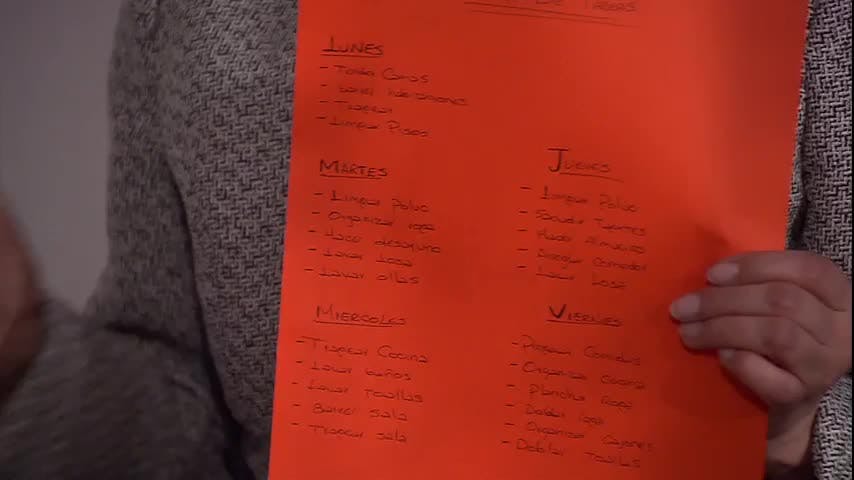 de Tareas
Lunes
- Tender Camas
- Barrer habitaciones
- Trapear
- Limpiar Pisos
Martes
- Limpiar polvo
- Organizar ropa
- Hacer desayuno
- Lavar loza
- Lavar ollas
Miercoles
- Trapear Cocina
- Lavar baños
- Lavar Toallas
- Barrer sala
- Trapear sala
Jueves
- Limpiar Polvo
- Sacudir
- Hacer Almuerzo
- Comedor
- Lavar Loza
Viernes
- Comidas
- Organizar Cocina
- Planchar Ropa
- Doblar ropa
- Organizar Cajones
- Doblar Toallas